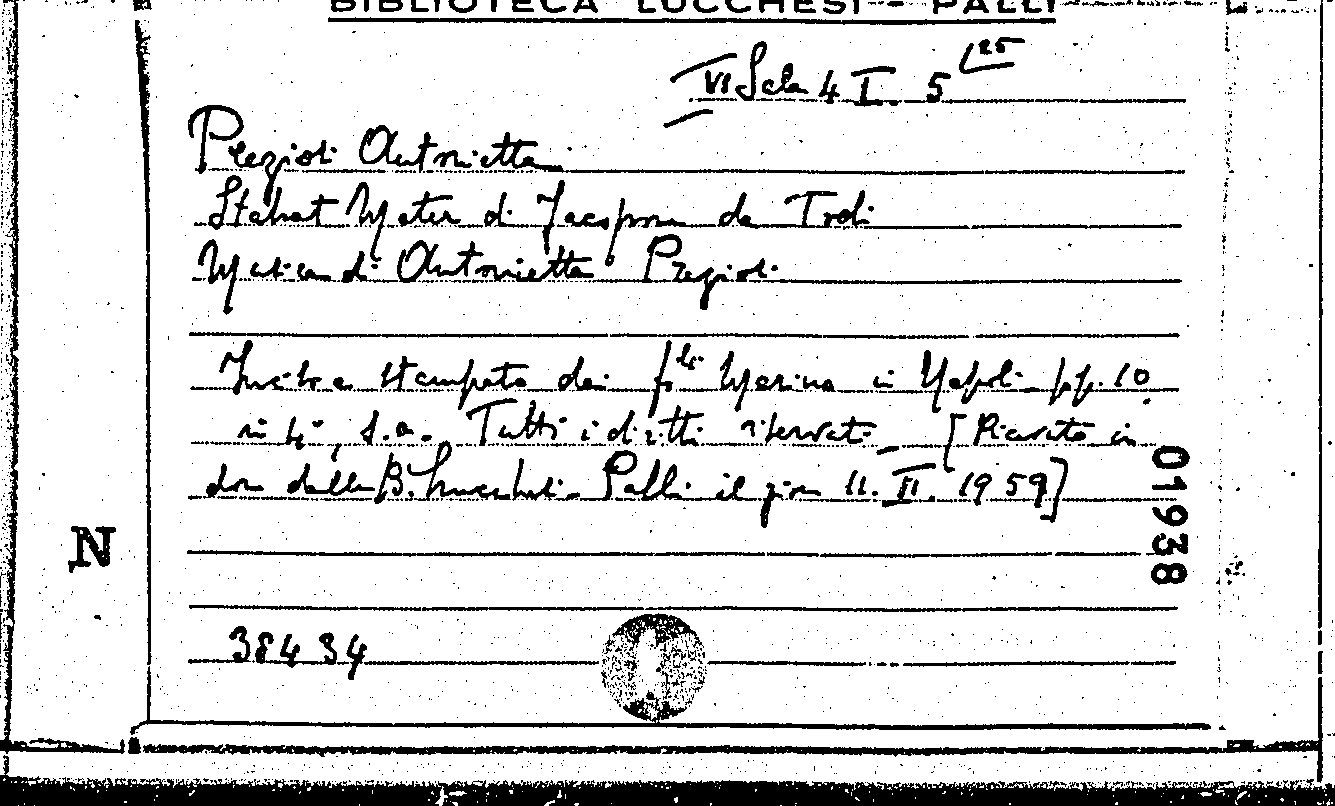 BIBLIOTECA LUCCHESI - PALLI
VI Sala 4 I. 5 25
Preziosi Antonietta
Stabat Mater di Jacopone da Todi
Musica di Antonietta Preziosi
Incitra stampato dai f.lli Marino in Napoli pp. 10
in 4°, s.a. Tutti i diritti riservati [Ricevuto in
dono dalla B. Lucchesi-Palli il giorno 11. II. 1959]
01938
N
38434